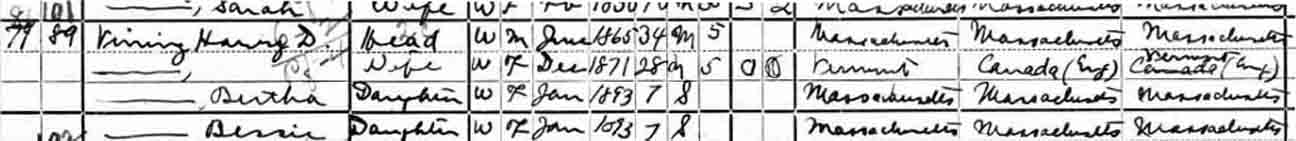 101 ——, Sarah Wife W F 3 2 Massachusetts Massachusetts Massachusetts
79 89 Vining Harry D. Head W M June 1865 34 M 5 Massachusetts Massachusetts Massachusetts
——, Wife W F Dec 1871 28 M 5 0 0 Vermont Canada (Eng) Vermont Canada (Eng)
——, Bertha Daughter W F Jan 1893 7 S Massachusetts Massachusetts Massachusetts
—— Bessie Daughter W F Jan 1893 7 S Massachusetts Massachusetts Massachusetts